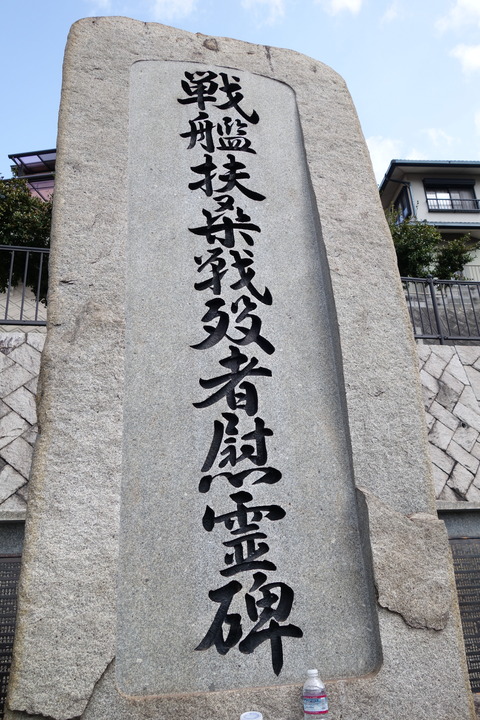 戦艦扶桑戦歿者慰霊碑